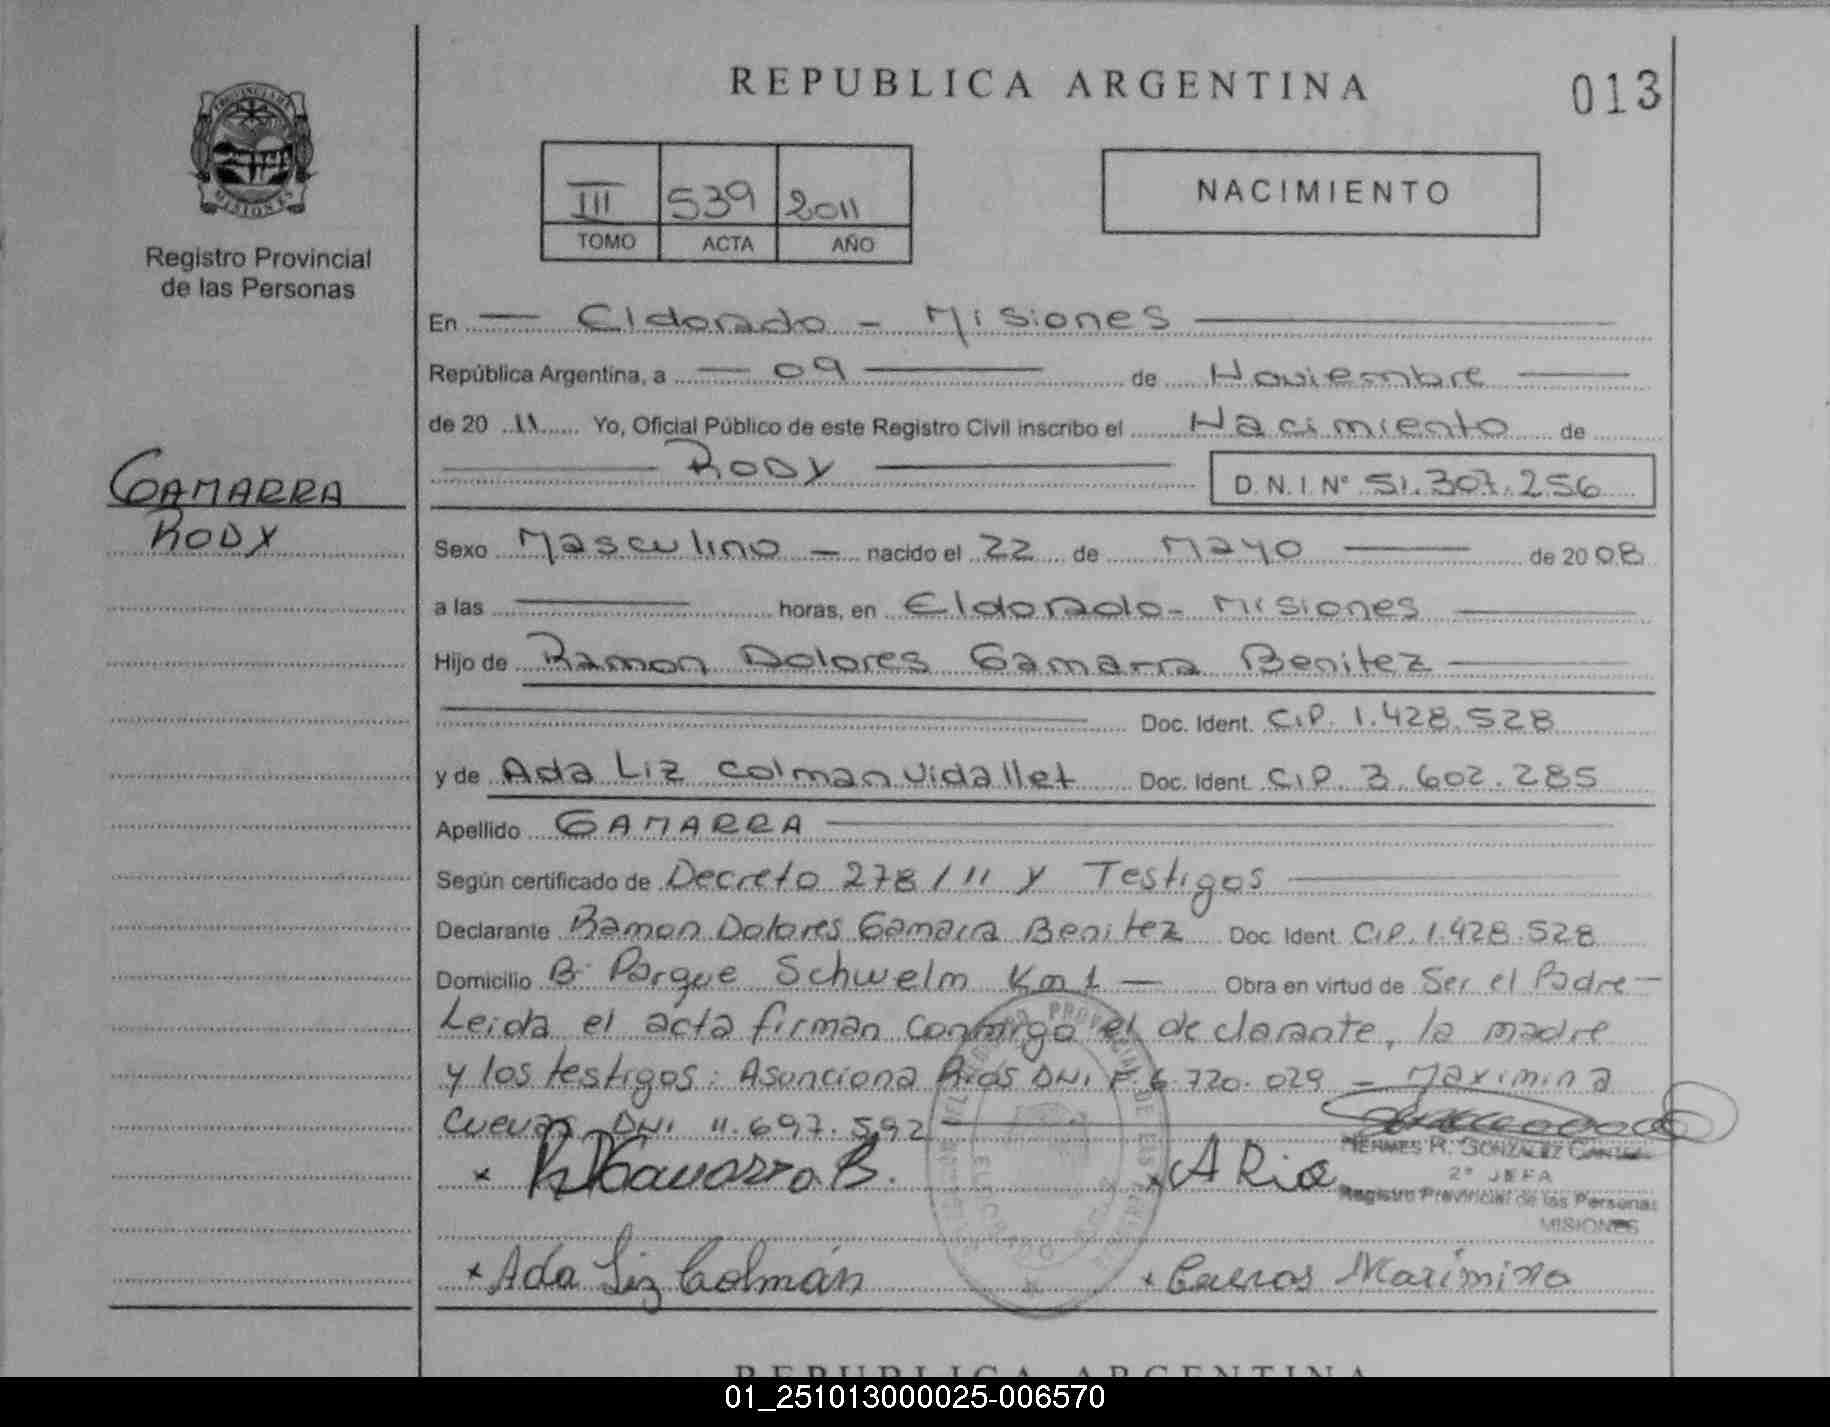 REPUBLICA ARGENTINA
013
III 539 2011
TOMO ACTA AÑO
NACIMIENTO
MISIONES
Registro Provincial
de las Personas
GAMARRA
RODY
En Eldorado - Misiones
República Argentina, a 09 de Noviembre
de 20 11 Yo, Oficial Público de este Registro Civil inscribo el Nacimiento de
RODY D.N.I. Nº 51.307.256
Sexo Masculino - nacido el 22 de Mayo de 2008
a las horas, en Eldorado - Misiones
Hijo de Ramon Dolores Gamarra Benitez
Doc. Ident. C.I.P. 1.428.528
y de Ada Liz Colman Vidallet Doc. Ident. C.I.P. 3.602.285
Apellido GAMARRA
Según certificado de Decreto 278/11 y Testigos
Declarante Ramon Dolores Gamarra Benitez Doc. Ident. C.I.P. 1.428.528
Domicilio Bº Parque Schwelm Km 1 - Obra en virtud de Ser el Padre -
Leida el acta firman conmigo el declarante, la madre
y los testigos: Asunciona DNI F 6.720.029 - Maximina
Cuevas DNI 11.697.592
HERMES R. GONZALEZ
2º JEFA
Registro Provincial de las Personas
MISIONES
x Ada Liz Colmán
01_251013000025-006570